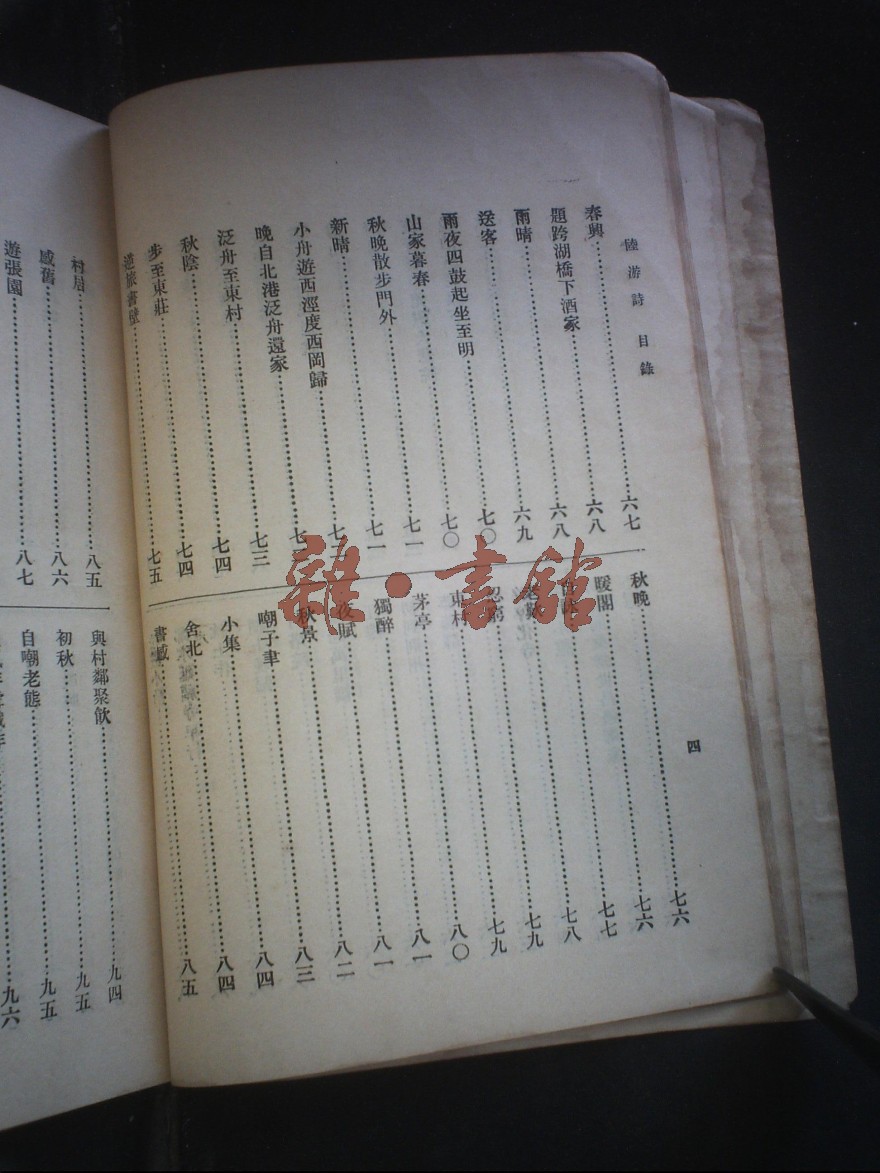 陸游詩 目錄
春興……六七
題跨湖橋下酒家……六八
雨晴……六八
送客……六九
雨夜四鼓起坐至明……七〇
山家暮春……七〇
秋晚散步門外……七一
新晴……七一
小舟遊西涇度西岡歸……七二
晚自北港泛舟還家……七
泛舟至東村……七三
秋陰……七四
步至東莊……七四
逆旅書壁……七五
秋晚……七六
暖閣……七六
……七七
……七八
忍窮……七九
東村……七九
茅亭……八〇
獨醉……八一
夜賦……八一
秋景……八二
嘲子聿……八三
小集……八四
舍北……八四
書感……八五
四
村居……八五
感舊……八六
遊張園……八七
與村鄰聚飲……九四
初秋……九五
自嘲老態……九五
……九六
雜·書館